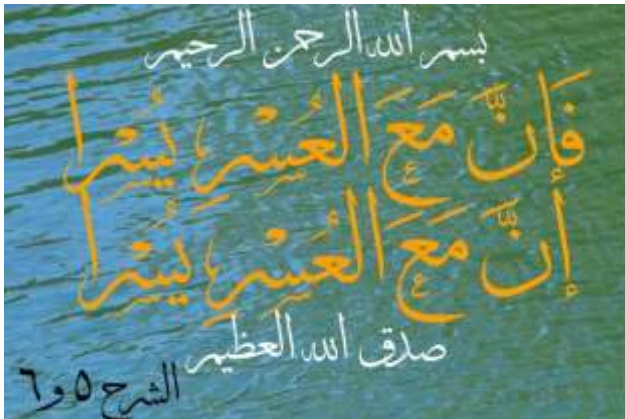 بسم الله الرحمن الرحيم
فَإِنَّ مَعَ العُسْرِ يُسْرا
إنَّ مَعَ العُسْرِ يُسْرا
صدق الله العظيم
الشرح ٥ و ٦